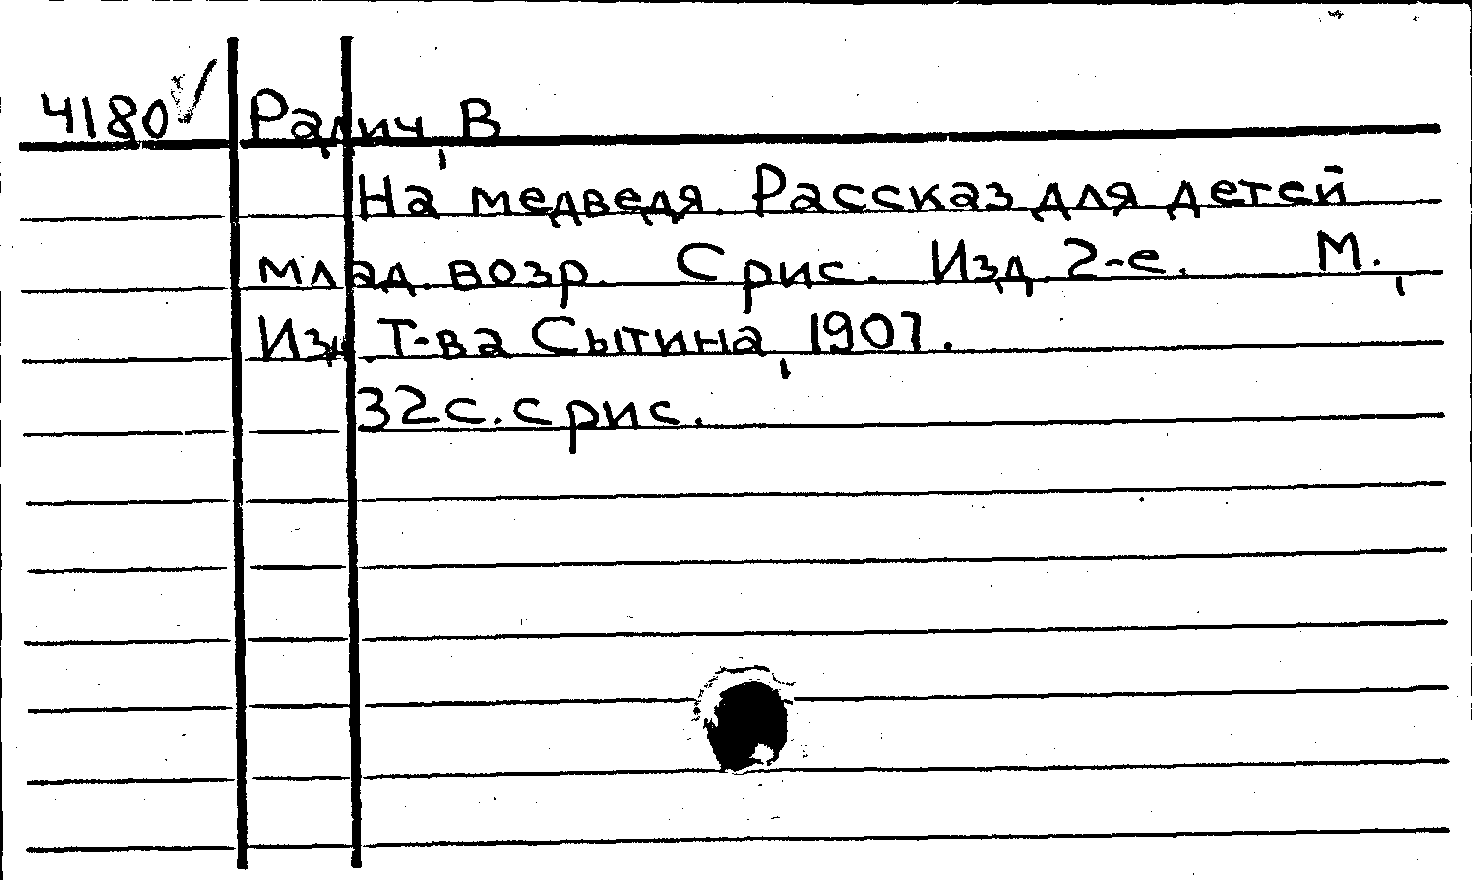 4180 Радич, В
На медведя. Рассказ для детей
млад. возр. С рис. Изд. 2-е. М.,
Изд. Т-ва Сытина, 1907.
32с. с рис.